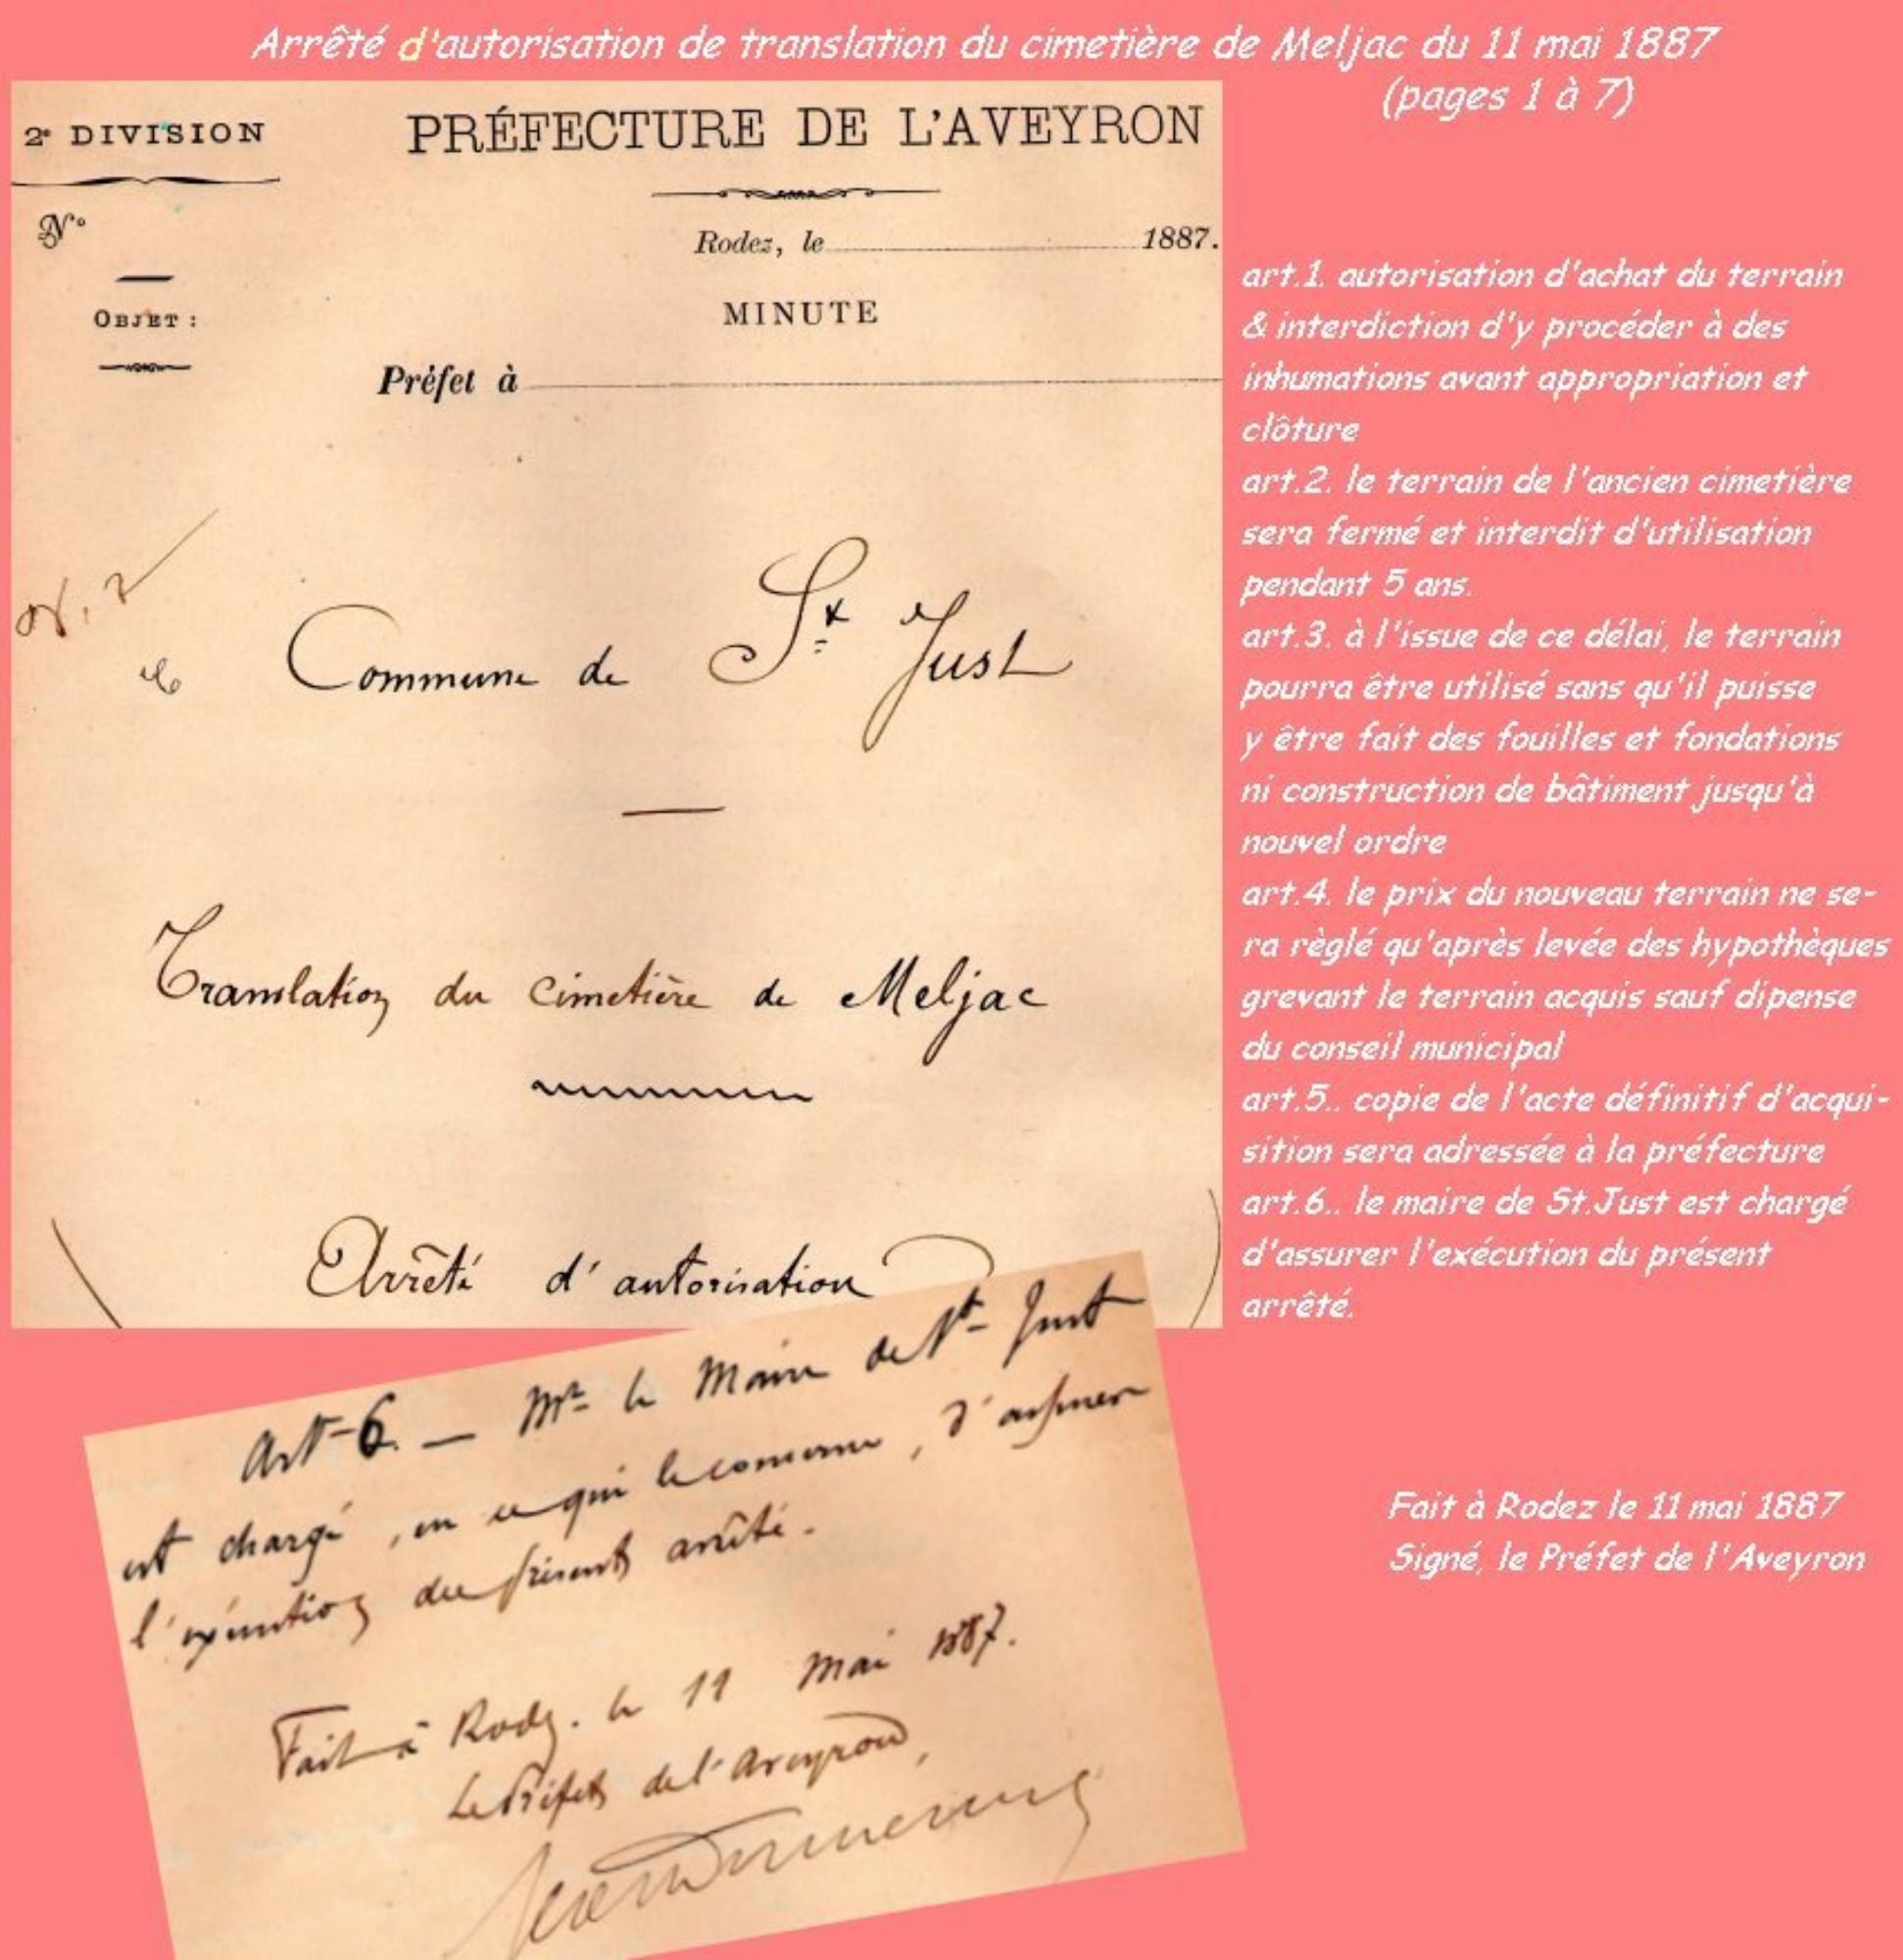 Arrêté d'autorisation de translation du cimetière de Meljac du 11 mai 1887
(pages 1 à 7)
2e DIVISION
PRÉFECTURE DE L'AVEYRON
N°
Rodez, le 1887.
OBJET :
MINUTE
Préfet à
Commune de St Just
Translation du cimetière de Meljac
Arrêté d'autorisation
Art 6. — Mr le Maire de St Just
est chargé, en ce qui le concerne, d'assurer
l'exécution du présent arrêté.
Fait à Rodez. le 11 Mai 1887.
Le Préfet de l'Aveyron,
art.1. autorisation d'achat du terrain
& interdiction d'y procéder à des
inhumations avant appropriation et
clôture
art.2. le terrain de l'ancien cimetière
sera fermé et interdit d'utilisation
pendant 5 ans.
art.3. à l'issue de ce délai, le terrain
pourra être utilisé sans qu'il puisse
y être fait des fouilles et fondations
ni construction de bâtiment jusqu'à
nouvel ordre
art.4. le prix du nouveau terrain ne se-
ra règlé qu'après levée des hypothèques
grevant le terrain acquis sauf dipense
du conseil municipal
art.5.. copie de l'acte définitif d'acqui-
sition sera adressée à la préfecture
art.6.. le maire de St.Just est chargé
d'assurer l'exécution du présent
arrêté.
Fait à Rodez le 11 mai 1887
Signé, le Préfet de l'Aveyron